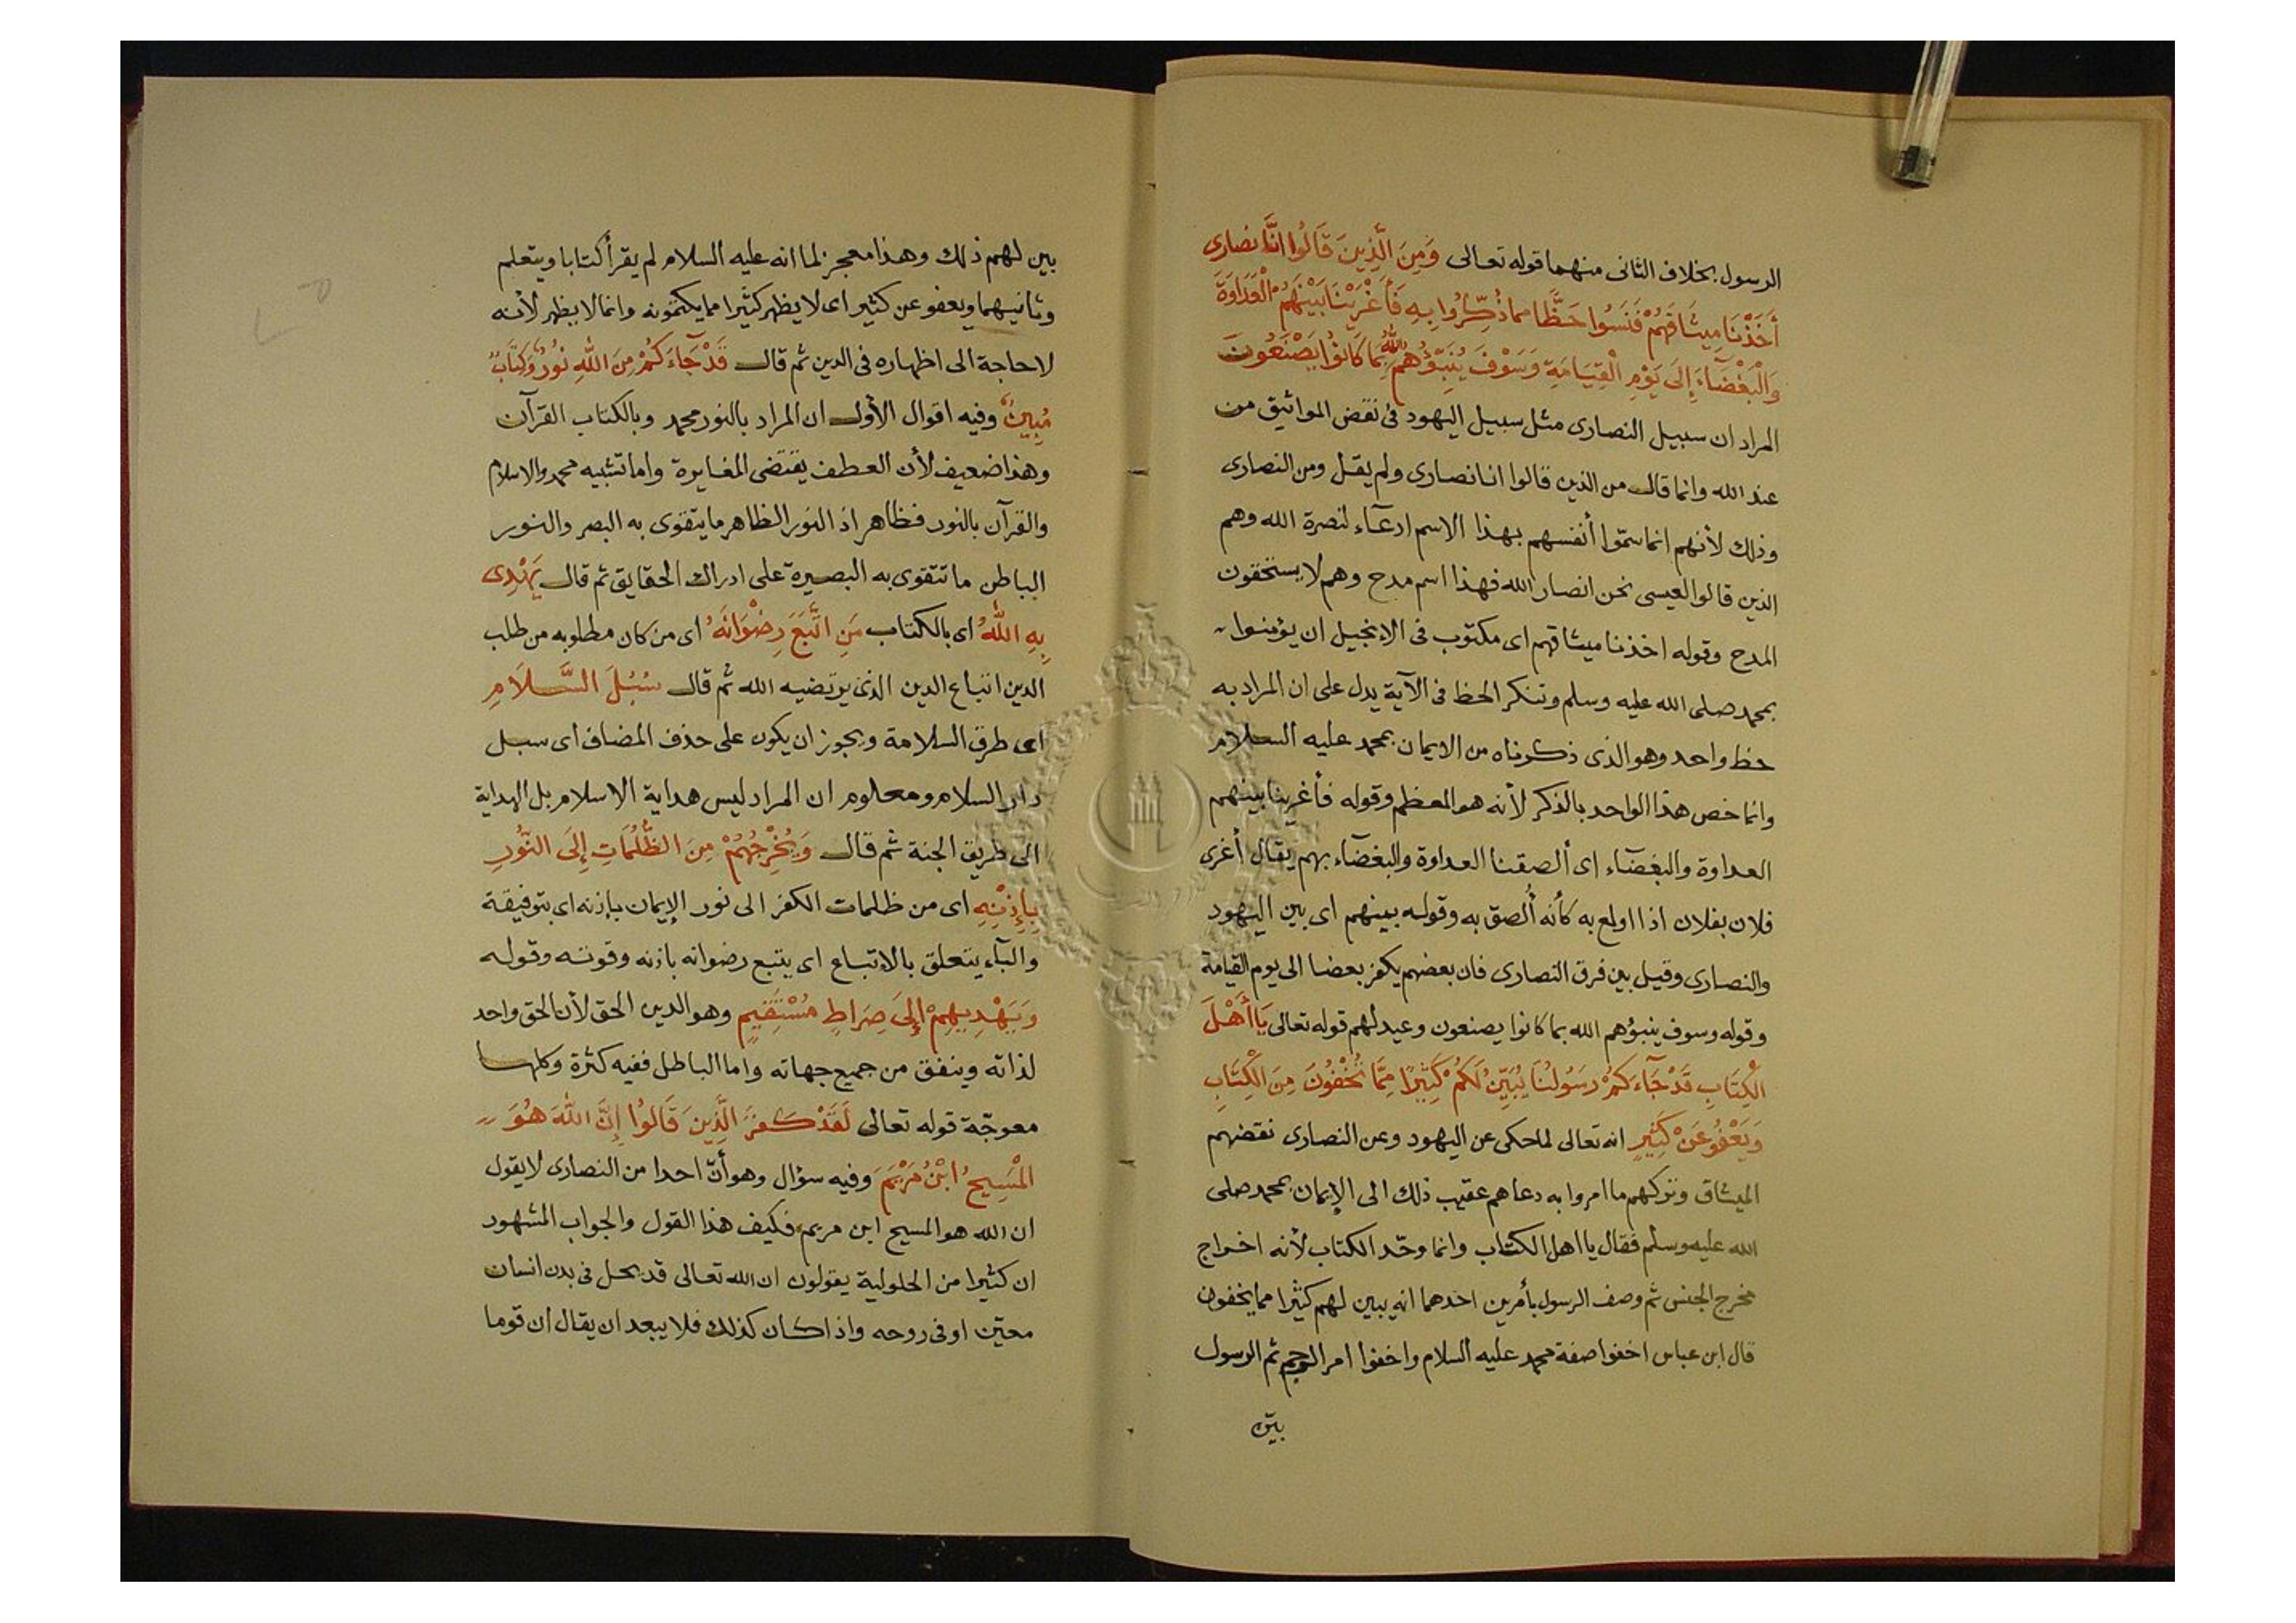 الرسول بخلاف الثانى منهما قوله تعالى وَمِنَ الَّذِينَ قَالُوا انَّا نصارى
أَخَذْنَا مِيثَاقَهُمْ فَنَسُوا حَظًّا مما ذُكِّرُوا بِهِ فَأَغْرَيْنَا بَيْنَهُمُ الْعَدَاوَةَ
وَالْبَغْضَآءَ إِلَى يَوْمِ الْقِيَامَةِ وَسَوْفَ يُنَبِّؤُهُمُ اللهُ بِمَا كَانُوا يَصْنَعُونَ
المراد ان سبيل النصارى مثل سبيل اليهود فى نقض المواثيق من
عند الله وانما قال من الذين قالوا انا نصارى ولم يقل ومن النصارى
وذلك لأنهم انما سمّوا أنفسهم بهذا الاسم ادعآء لنصرة الله وهم
الذين قالوا لعيسى نحن انصار الله فهذا اسم مدح وهم لا يستحقون
المدح وقوله اخذنا ميثاقهم اى مكتوب فى الإنجيل ان يؤمنوا
بمحمد صلى الله عليه وسلم وتنكر الحظ فى الآية يدل على ان المراد به
حظ واحد وهو الذى ذكرناه من الايمان بمحمد عليه السلام
وانما خص هذا الواحد بالذكر لأنه هو المعظم وقوله فأغرينا بينهم
العداوة والبغضآء اى ألصقنا العداوة والبغضآء بهم يقال أغرى
فلان بفلان اذا اولع به كأنه أُلصق به وقوله بينهم اى بين اليهود
والنصارى وقيل بين فرق النصارى فان بعضهم يكفر بعضا الى يوم القيامة
وقوله وسوف ينبؤهم الله بما كانوا يصنعون وعيد لهم قوله تعالى يَا أَهْلَ
الْكِتَابِ قَدْ جَآءَكُمْ رَسُولُنَا يُبَيِّنُ لَكُمْ كَثِيرًا مِمَّا تُخْفُونَ مِنَ الْكِتَابِ
وَيَعْفُو عَنْ كَثِيرٍ انه تعالى لما حكى عن اليهود وعن النصارى نقضهم
الميثاق وتركهم ما امروا به دعاهم عقيب ذلك الى الإيمان بمحمد صلى
الله عليه وسلم فقال يا اهل الكتاب وانما وحّد الكتاب لأنه اخراج
مخرج الجنس ثم وصف الرسول بأمرين احدهما انه يبين لهم كثيرا مما يخفون
قال ابن عباس اخفوا صفة محمد عليه السلام واخفوا امر الرجم ثم الرسول
بيّن
بين لهم ذلك وهذا معجز لما انه عليه السلام لم يقرأ كتابا ويتعلم
وثانيهما ويعفو عن كثير اى لا يظهر كثيرا مما يكتمونه وانما لا يظهر لأنه
لا حاجة الى اظهاره فى الدين ثم قال قَدْ جَآءَكُمْ مِنَ اللهِ نُورٌ وَكِتَابٌ
مُبِينٌ وفيه اقوال الأول ان المراد بالنور محمد وبالكتاب القرآن
وهذا ضعيف لأن العطف يقتضى المغايرة واما تشبيه محمد والاسلام
والقرآن بالنور فظاهر اذ النور الظاهر ما يتقوى به البصر والنور
الباطن ما تتقوى به البصيرة على ادراك الحقايق ثم قال يَهْدِى
بِهِ اللهُ اى بالكتاب مَنِ اتَّبَعَ رِضْوَانَهُ اى من كان مطلوبه من طلب
الدين اتباع الدين الذى يرتضيه الله ثم قال سُبُلَ السَّلَامِ
اى طرق السلامة ويجوز ان يكون على حذف المضاف اى سبل
دار السلام ومعلوم ان المراد ليس هداية الاسلام بل الهداية
الى طريق الجنة ثم قال وَيُخْرِجُهُمْ مِنَ الظُّلُمَاتِ إِلَى النُّورِ
بِإِذْنِهِ اى من ظلمات الكفر الى نور الإيمان بإذنه اى بتوفيقة
والبآء يتعلق بالاتباع اى يتبع رضوانه باذنه وقوته وقوله
وَيَهْدِيهِمْ إِلَىَ صِرَاطٍ مُسْتَقِيمٍ وهو الدين الحق لأن الحق واحد
لذاته ويتفق من جميع جهاته واما الباطل ففيه كثرة وكلها
معوجّة قوله تعالى لَقَدْ كَفَرَ الَّذِينَ قَالُوا إِنَّ اللهَ هُوَ
الْمَسِيحُ ابْنُ مَرْيَمَ وفيه سؤال وهو أنّ احدا من النصارى لا يقول
ان الله هو المسيح ابن مريم فكيف هذا القول والجواب المشهود
ان كثيرا من الحلولية يقولون ان الله تعالى قد يحل فى بدن انسان
معيّن او فى روحه واذا كان كذلك فلا يبعد ان يقال ان قوما